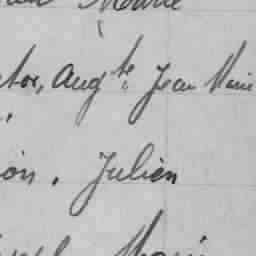 Marie
tor, Aug te Jean Marie
ion. Julien
Marie